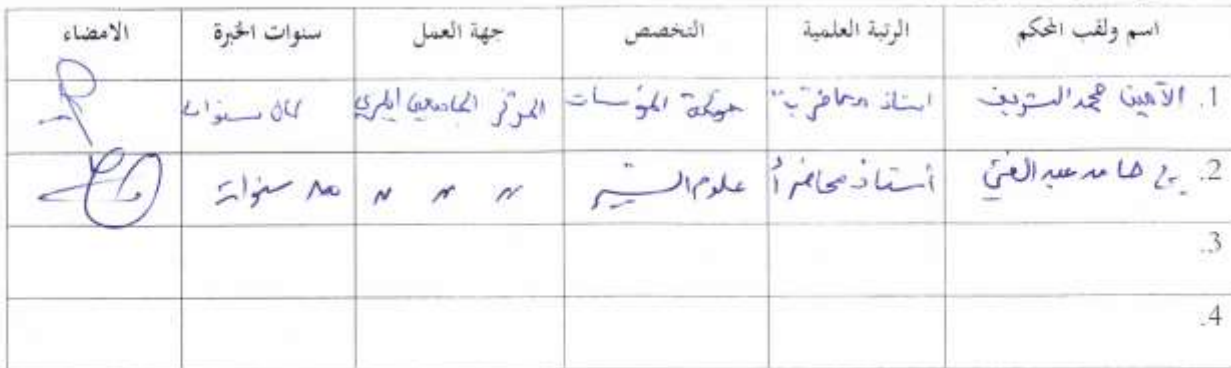 اسم ولقب المحكم الرتبة العلمية التخصص جهة العمل سنوات الخبرة الامضاء
1. الأمين محمد الشريف أستاذ محاضر "ب" حوكمة المؤسسات المركز الجامعي ايليزي ثمان سنوات
2. حامد عبد الغني أستاذ محاضر أ علوم التسيير 〃 〃 〃 سنوات
3.
4.